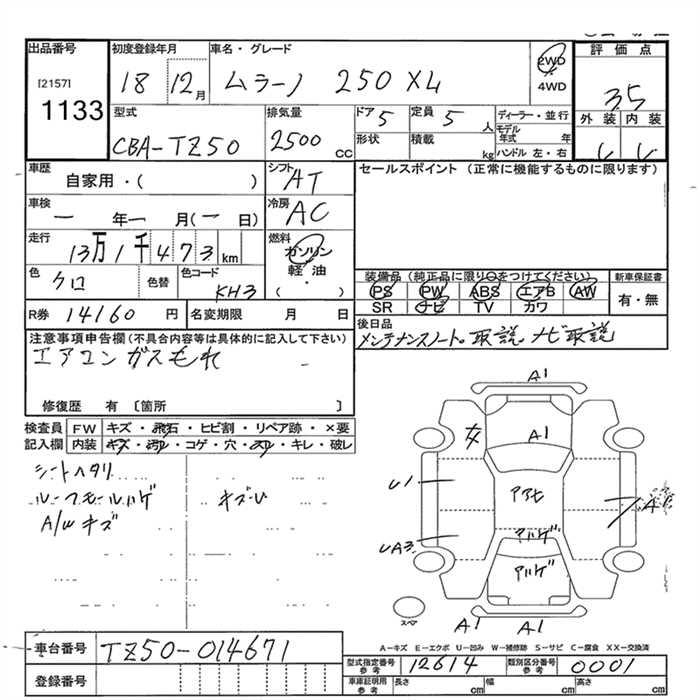 出品番号 初度登録年月 車名・グレード 評価点
[2157] 18 12月 ムラーノ 250 XL 2WD 3.5
1133 4WD
型式 排気量 ドア 定員 ディーラー・並行 外装 内装
CBA-TZ50 2500 CC 5 5 人 モデル年式 年
形状 積載 kg ハンドル 左・右
車歴 シフト AT セールスポイント (正常に機能するものに限ります)
自家用・( )
車検 冷房 AC
一 年 一 月(一 日)
走行 燃料
13万1千473km ガソリン
軽油
色 クロ 色替 色コード KH3 ( ・ )
装備品(純正品に限り○をつけてください) 新車保証書
PS PW ABS エアB AW 有・無
SR ナビ TV カワ
R券 14160 円 名変期限 月 日
後日品 メンテナンスノート。取説。ナビ取説
注意事項申告欄(不具合内容等は具体的に記入して下さい)
エアコンガスもれ
修復歴 有 〔箇所 〕
検査員 FW キズ・飛石・ヒビ割・リペア跡・×要
記入欄 内装 キズ・汚レ・コゲ・穴・スレ・キレ・破レ
シートヘタリ
ルーフモールハゲ キズ・U
A/W キズ
A1
A1
U1
UA3
アハゲ
アハゲ
スペア
A1 A1
A-キズ E-エクボ U-凹み W-補修跡 S-サビ C-腐食 XX-交換済
車台番号 TZ50-014671
型式指定番号 参考 12614 類別区分番号 参考 0001
登録番号
車庫証明用 参考 長さ cm 幅 cm 高さ cm